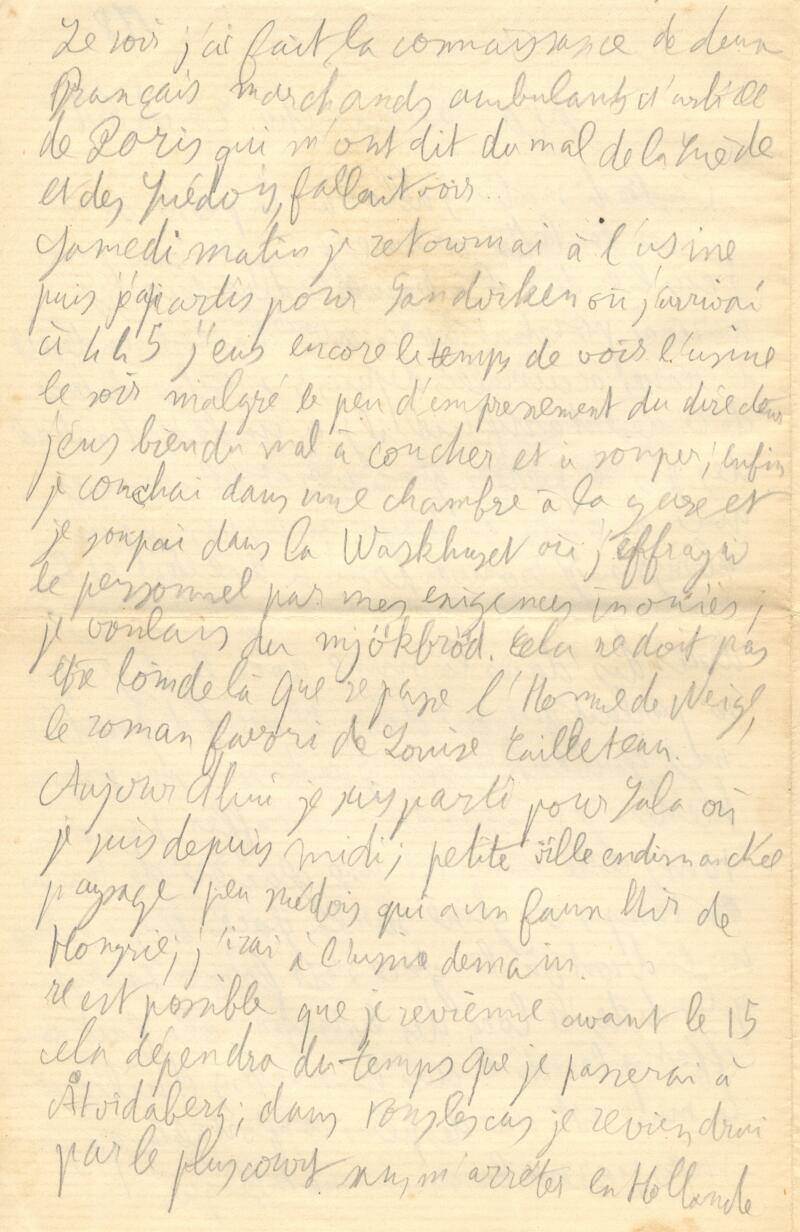 Le soir j'ai fait la connaissance de deux
Français marchands ambulants d'article
de Paris qui m'ont dit du mal de la Suède
et des Suédois, fallait voir..
Samedi matin je retournai à l'usine
puis j'ai partis pour Sandviken où j'arrivai
à 4 h 5 j'eus encore le temps de voir l'usine
le soir malgré le peu d'empressement du directeur
j'eus bien du mal à coucher et à souper; enfin
je couchai dans une chambre à la gare et
je soupai dans la Waskhuset où j'effrayai
le personnel par mes exigences inouïes;
je voulais du mjökbröd. Cela ne doit pas
être loin de là que se passe l'Homme de Neige,
le roman favori de Louise Tailleteau.
Aujourd'hui je suis parti pour Sala où
je suis depuis midi; petite ville endimanchée
paysage peu suédois qui a un faux air de
Hongrie; j'irai à l'usine demain.
Il est possible que je revienne avant le 15
cela dépendra du temps que je passerai à
Åtvidaberg; dans tous les cas je reviendrai
par le plus court sans m'arrêter en Hollande